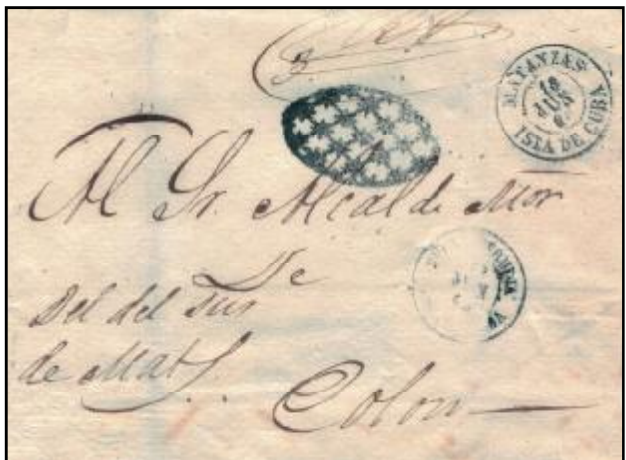 MATANZAS
18
JUN
6
ISLA DE CUBA
Al Sr. Alcalde Mor
de
Del del Sur
de Mat
Colon